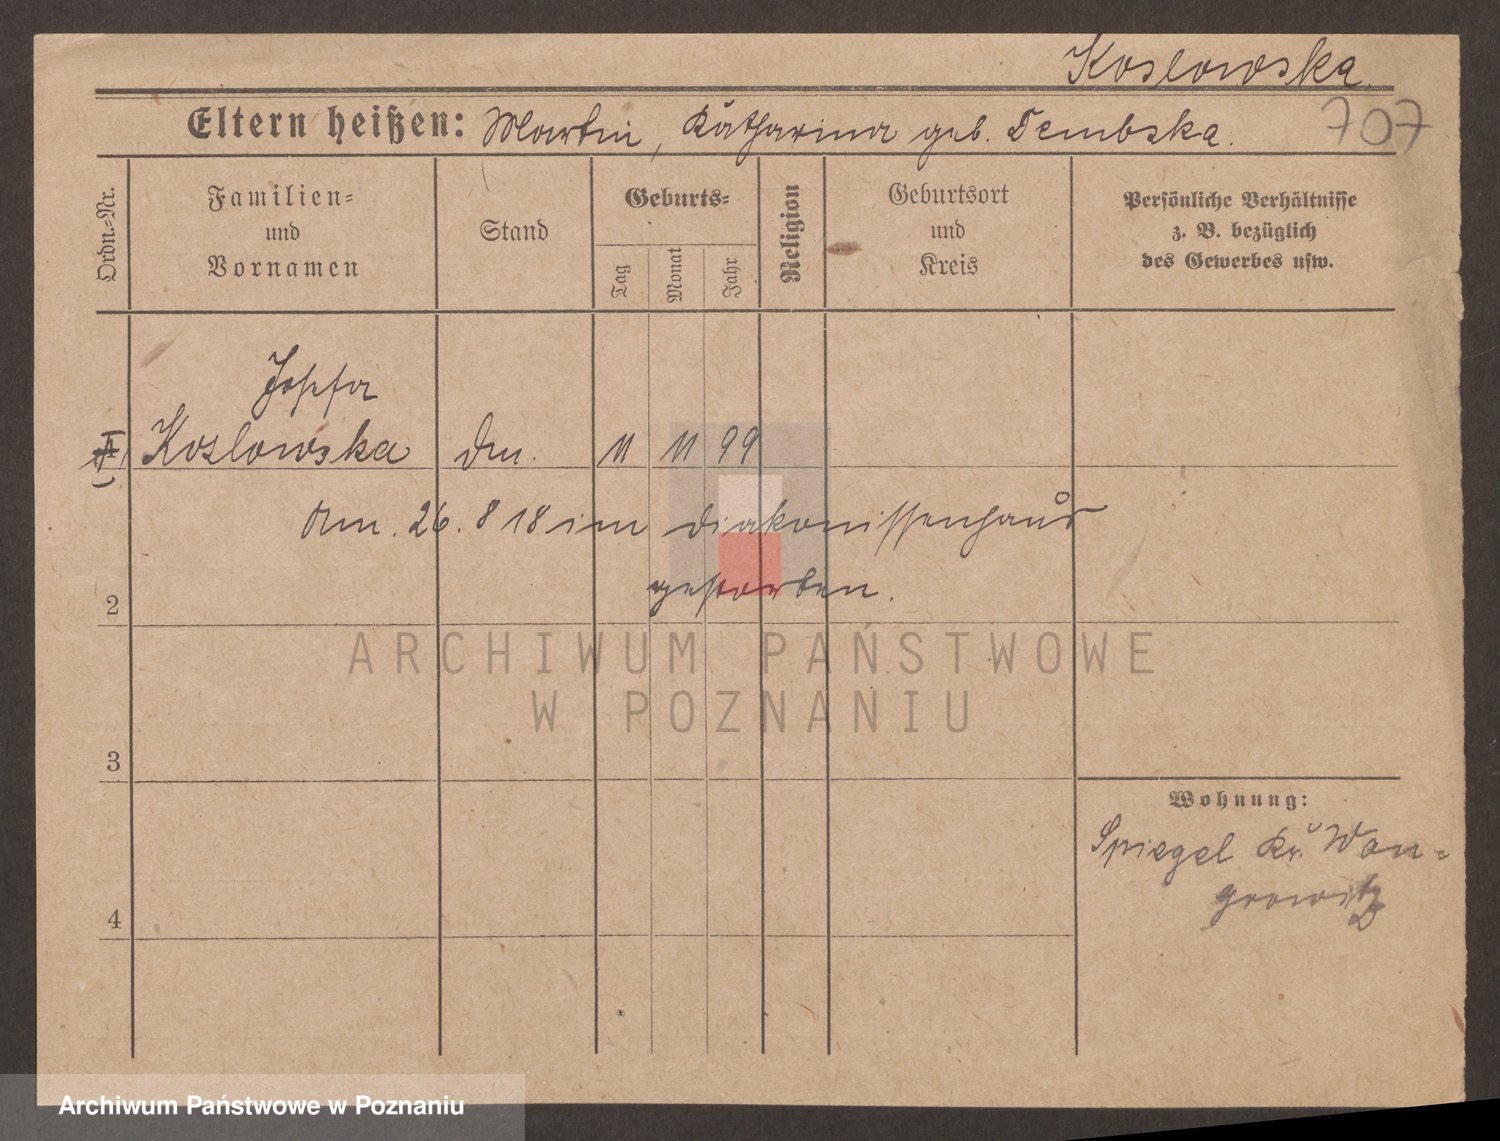 Koslowska.
Eltern heißen: Martin, Katharina geb. Dembska.
707
Ordn.-Nr.
Familien-
und
Vornamen
Stand
Geburts-
Tag
Monat
Jahr
Religion
Geburtsort
und
Kreis
Persönliche Verhältnisse
z. B. bezüglich
des Gewerbes usw.
Josefa
Koslowska
11 11 99
Am. 26. 8 18 im Diakonissenhaus
gestorben.
2
3
4
Wohnung:
Spiegel Kr. Won-
growitz
ARCHIWUM PAŃSTWOWE
W POZNANIU
Archiwum Państwowe w Poznaniu